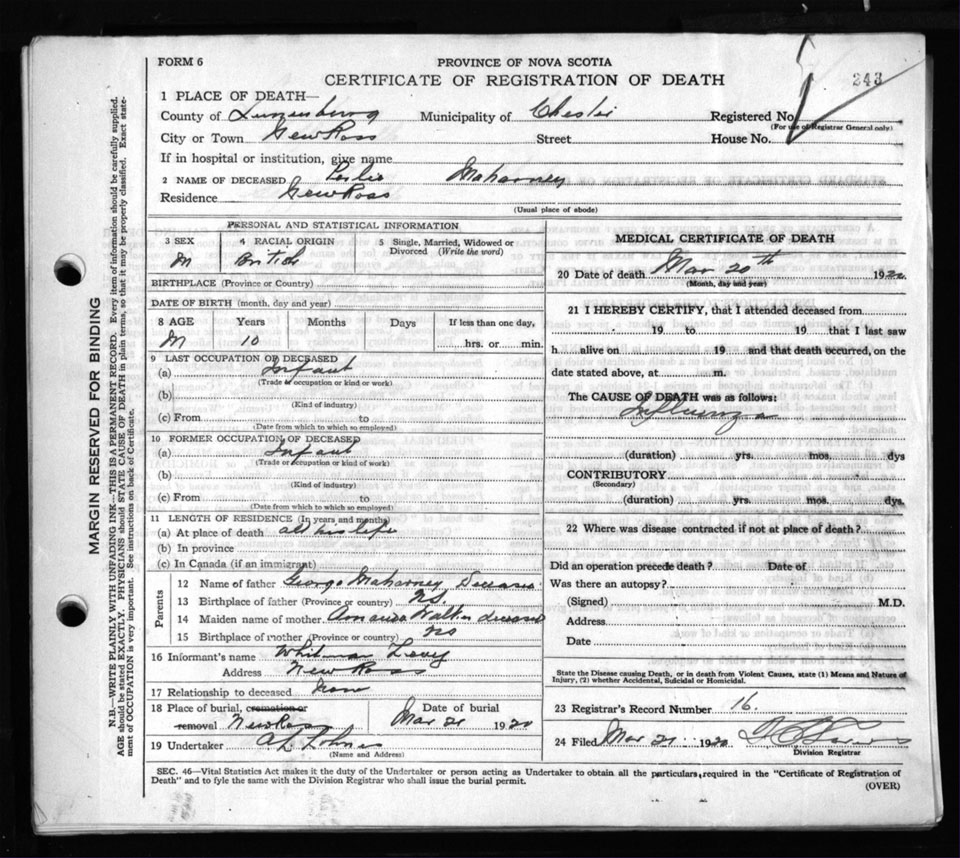 FORM 6
PROVINCE OF NOVA SCOTIA
CERTIFICATE OF REGISTRATION OF DEATH
243
1 PLACE OF DEATH—
County of Lunenburg Municipality of Chester Registered No.
(For use of Registrar General only)
City or Town New Ross Street House No.
If in hospital or institution, give name
2 NAME OF DECEASED Leslie Maharney
Residence New Ross
(Usual place of abode)
PERSONAL AND STATISTICAL INFORMATION
3 SEX 4 RACIAL ORIGIN 5 Single, Married, Widowed or Divorced (Write the word)
M British
BIRTHPLACE (Province or Country)
DATE OF BIRTH (month, day and year)
8 AGE Years Months Days If less than one day,
M 10 hrs. or min.
9 LAST OCCUPATION OF DECEASED
(a) Infant
(Trade or occupation or kind or work)
(b)
(Kind of industry)
(c) From to
(Date from which to which so employed)
10 FORMER OCCUPATION OF DECEASED
(a) Infant
(Trade or occupation or kind of work)
(b)
(Kind of industry)
(c) From to
(Date from which to which so employed)
11 LENGTH OF RESIDENCE (In years and months)
(a) At place of death all his life
(b) In province
(c) In Canada (if an immigrant)
Parents
12 Name of father George Maharney Deceased
13 Birthplace of father (Province or country) NS
14 Maiden name of mother Deceased
15 Birthplace of mother (Province or country) NS
16 Informant's name Whitman
Address New Ross
17 Relationship to deceased
18 Place of burial, cremation or removal New Ross Date of burial Mar 21 1920
19 Undertaker
(Name and Address)
MEDICAL CERTIFICATE OF DEATH
20 Date of death Mar 20th 1920
(Month, day and year)
21 I HEREBY CERTIFY, that I attended deceased from
19 to 19 that I last saw
h alive on 19 and that death occurred, on the
date stated above, at m.
The CAUSE OF DEATH was as follows:
Influenza
(duration) yrs. mos. dys
CONTRIBUTORY
(Secondary)
(duration) yrs. mos. dys.
22 Where was disease contracted if not at place of death?
Did an operation precede death? Date of
Was there an autopsy?
(Signed) M.D.
Address
Date
State the Disease causing Death, or in death from Violent Causes, state (1) Means and Nature of
Injury, (2) whether Accidental, Suicidal or Homicidal.
23 Registrar's Record Number 16.
24 Filed Mar 21 1920
Division Registrar
SEC. 46—Vital Statistics Act makes it the duty of the Undertaker or person acting as Undertaker to obtain all the particulars required in the "Certificate of Registration of
Death" and to fyle the same with the Division Registrar who shall issue the burial permit.
(OVER)
MARGIN RESERVED FOR BINDING
N.B.—WRITE PLAINLY WITH UNFADING INK—THIS IS A PERMANENT RECORD. Every item of information should be carefully supplied.
AGE should be stated EXACTLY. PHYSICIANS should STATE CAUSE OF DEATH in plain terms, so that it may be properly classified. Exact state-
ment of OCCUPATION is very important. See instructions on back of Certificate.